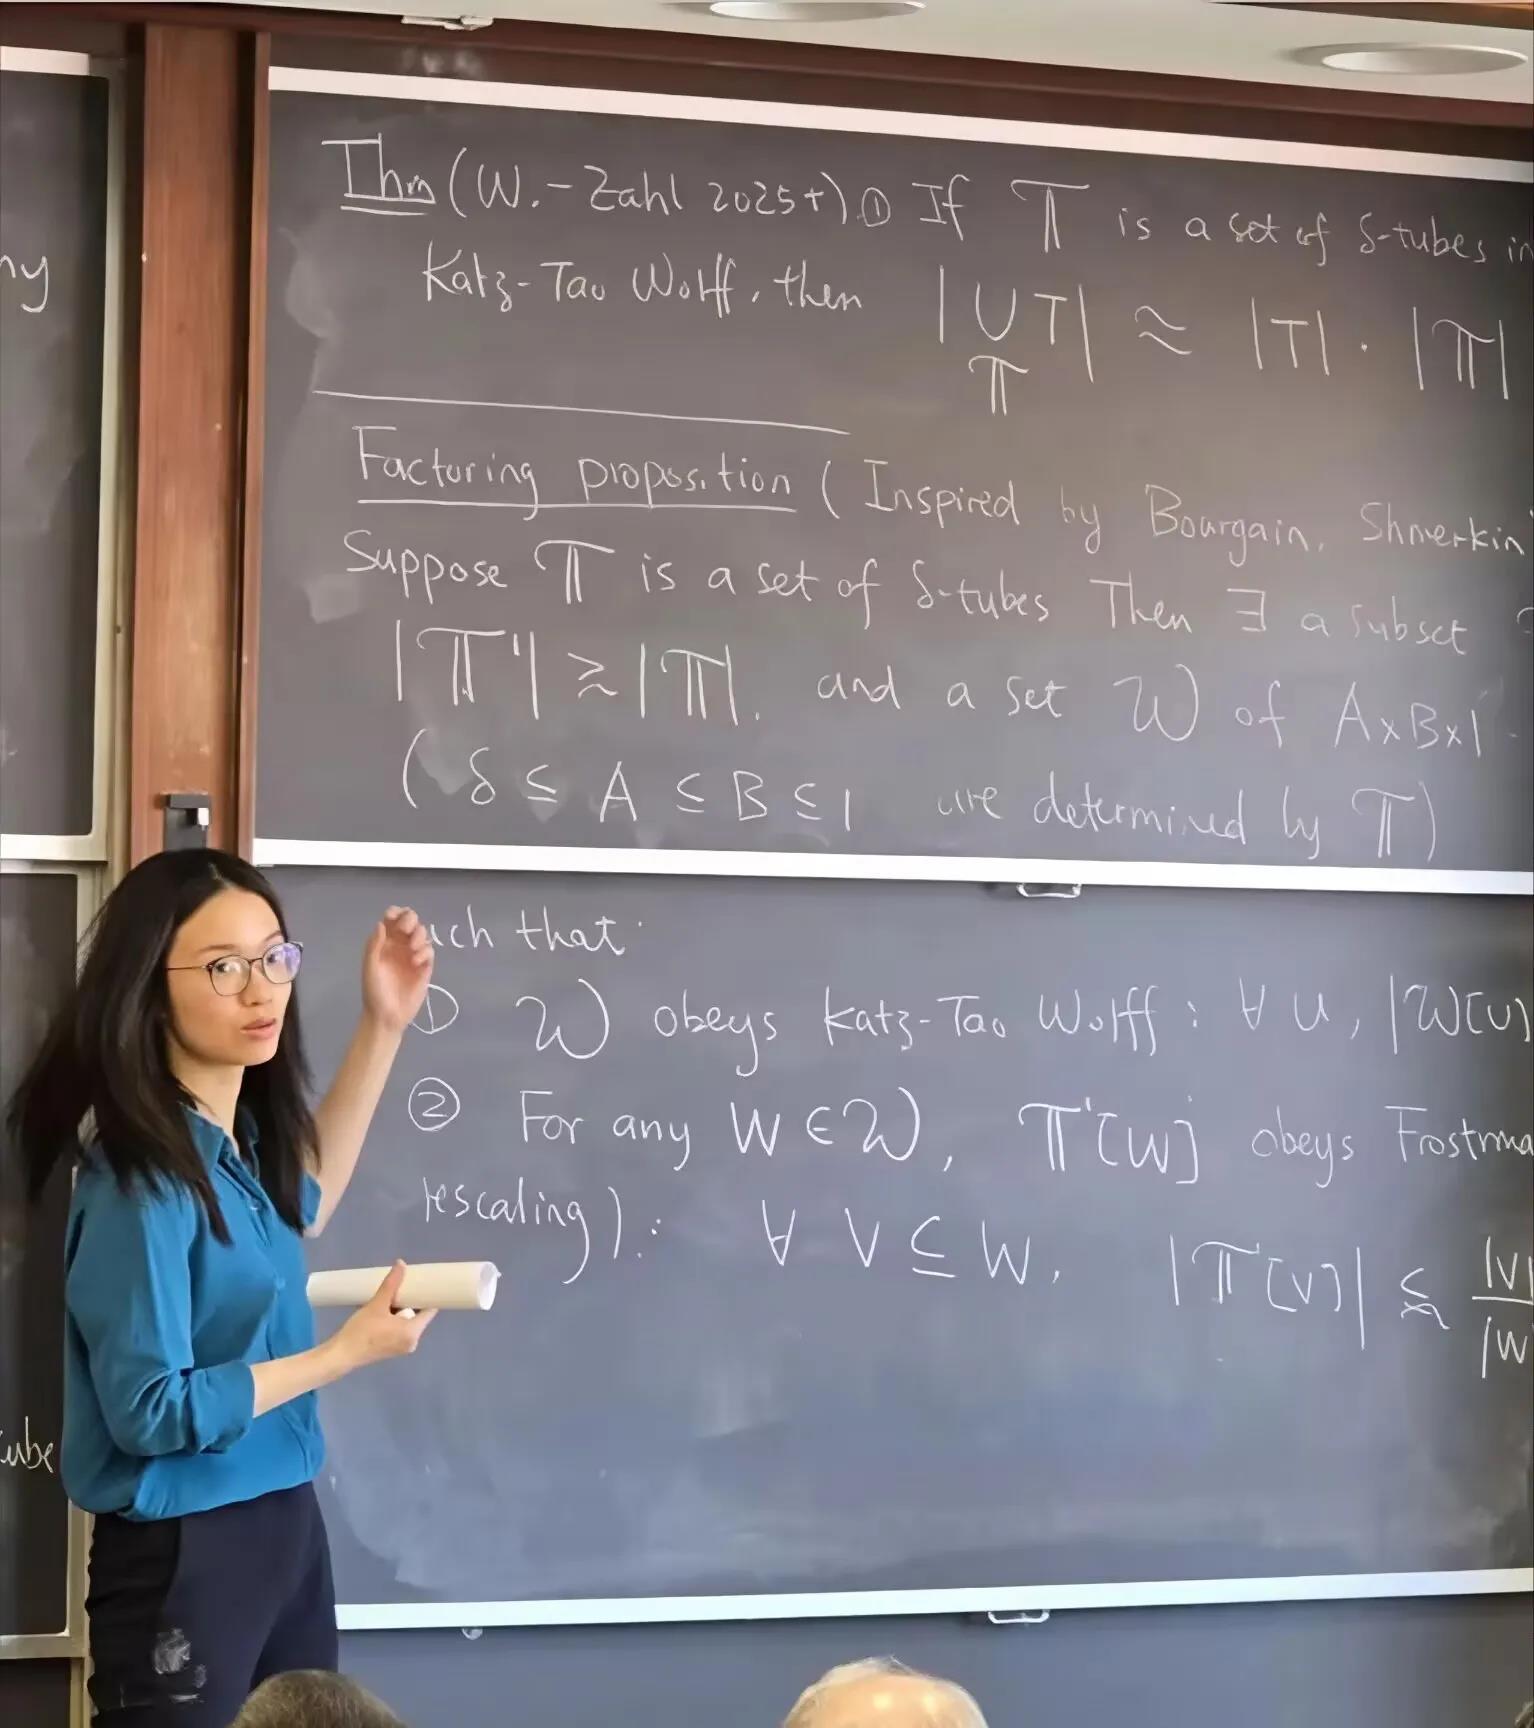 ny
ube
Thm (W. - Zahl 2025+) ① If 𝕋 is a set of δ-tubes in
Katz-Tao Wolff, then |⋃T| ≈ |T| · |𝕋|
𝕋
Factoring proposition (Inspired by Bourgain, Shmerkin
Suppose 𝕋 is a set of δ-tubes Then ∃ a subset
|𝕋'| ⪆ |𝕋|, and a set 𝒲 of A×B×1
(δ ≤ A ≤ B ≤ 1 are determined by 𝕋)
uch that:
① 𝒲 obeys Katz-Tao Wolff : ∀ U, |𝒲[U]
② For any W ∈ 𝒲, 𝕋'[W] obeys Frostma
rescaling): ∀ V ⊆ W, |𝕋'[V]| ⪅ |V|
|W